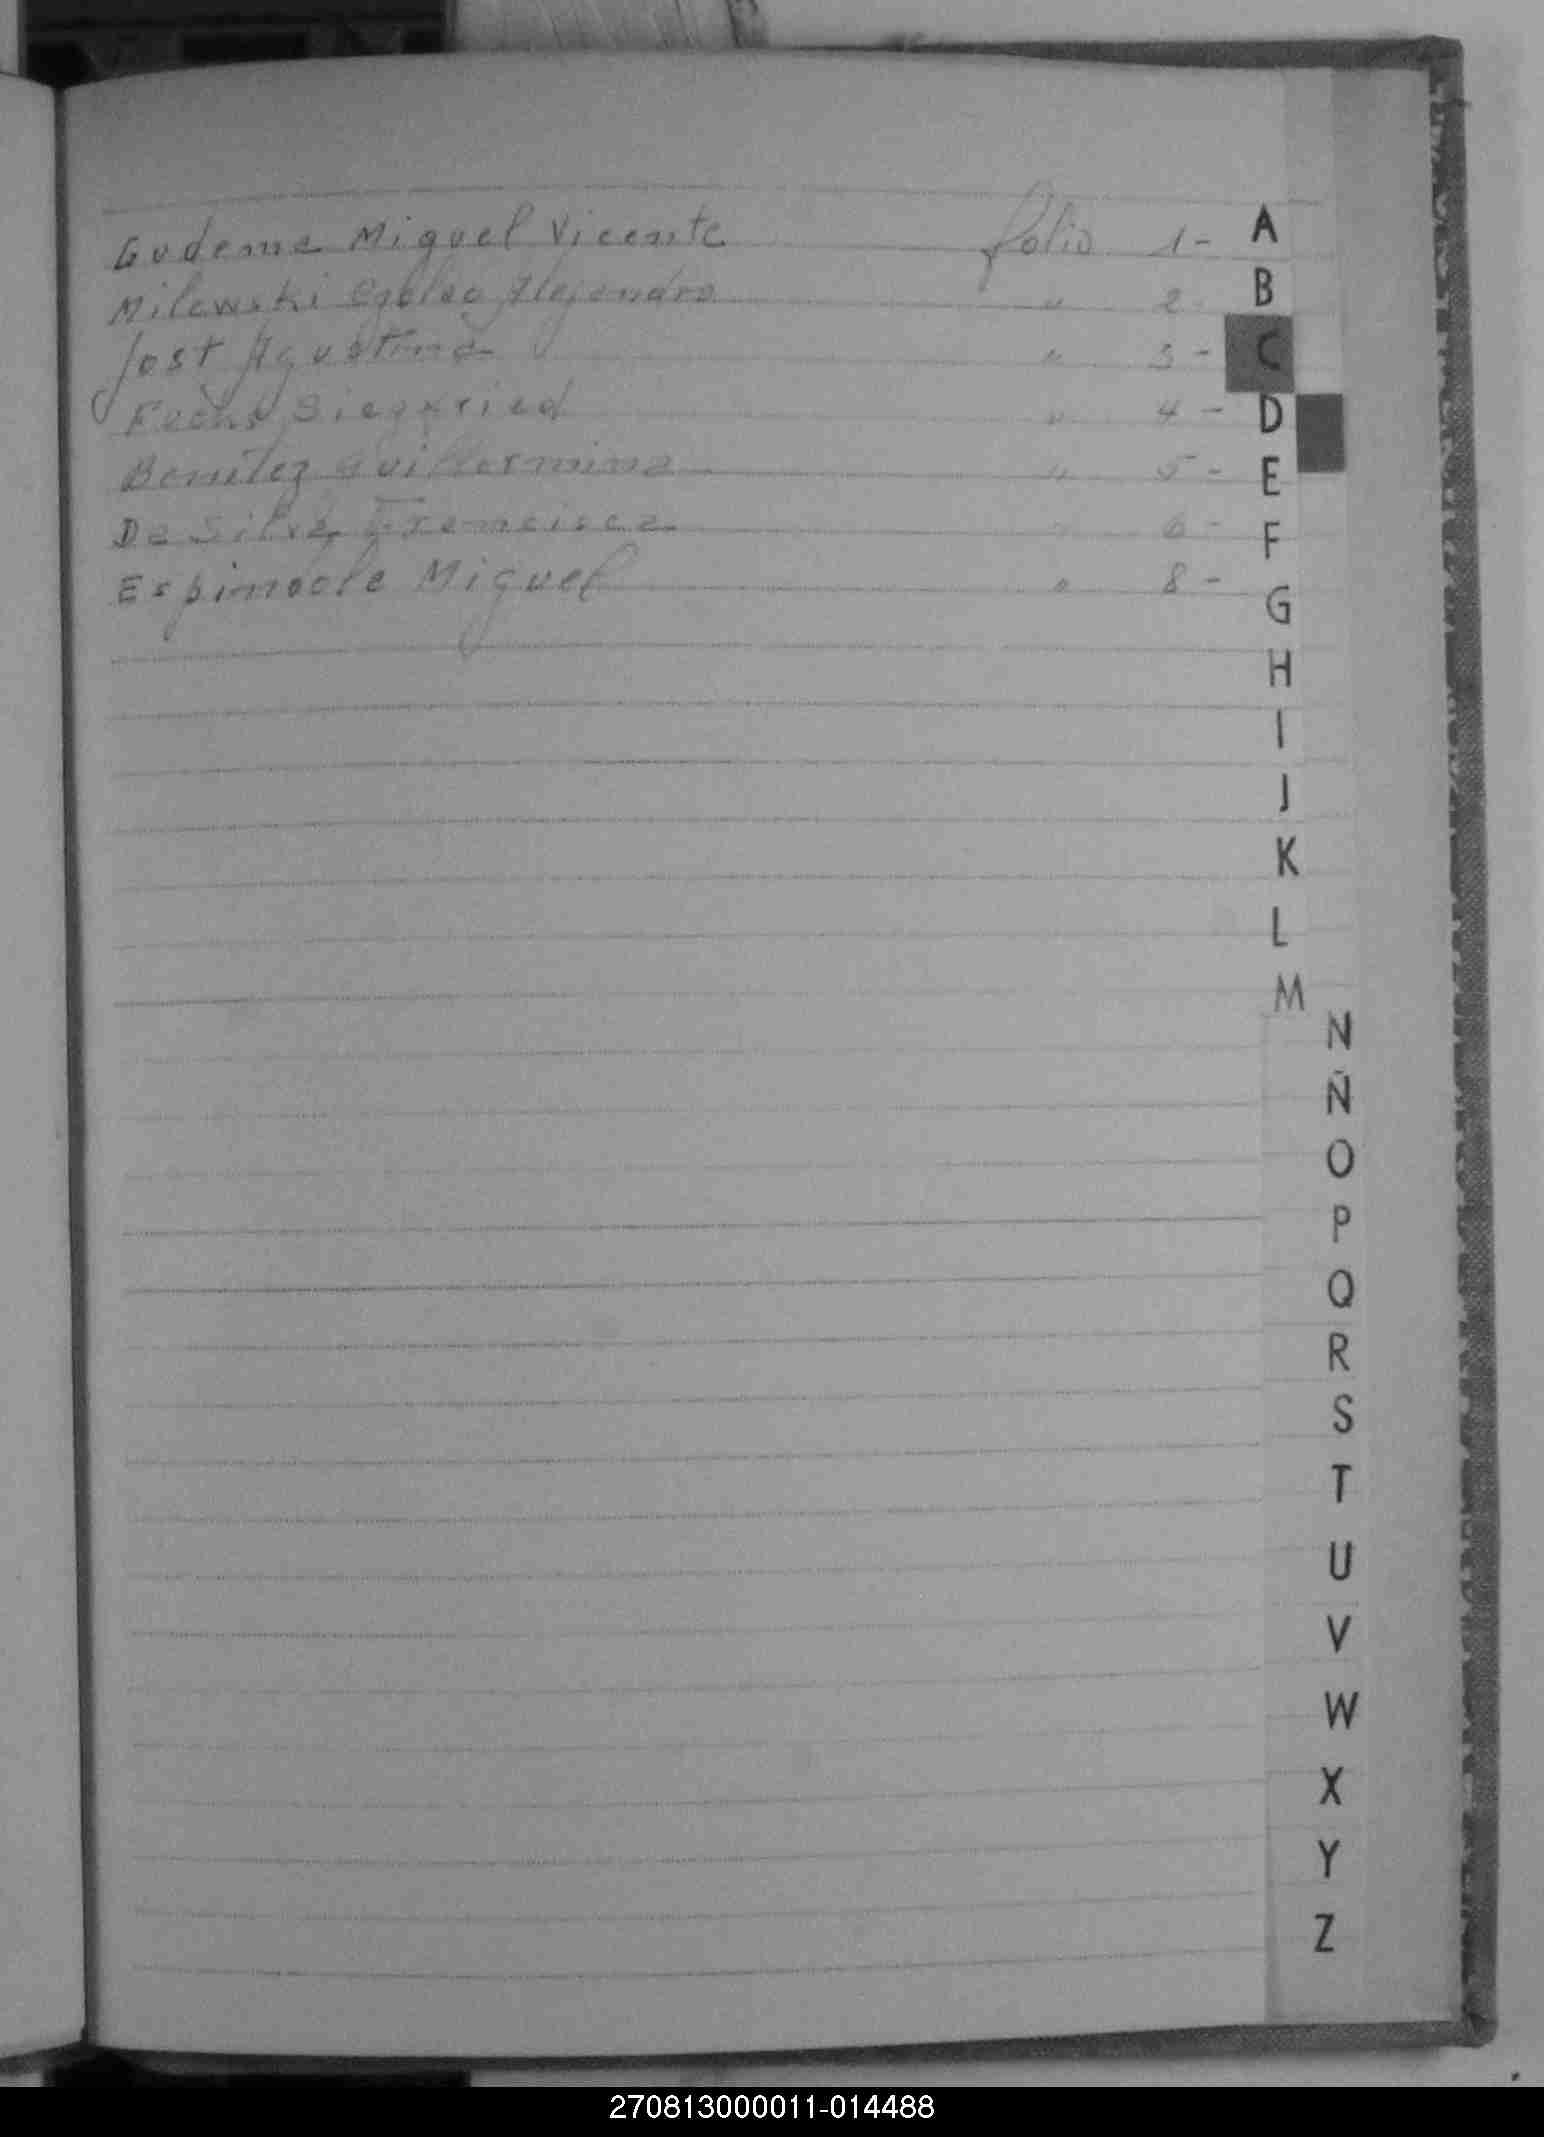 Gudema Miguel Vicente folio 1-
Milewski Alejandro " 2-
Jost Agustina " 3-
Siegfried " 4-
Benitez Guillermina " 5-
Da Silva Francisca " 6-
Espindola Miguel " 8-
A
B
C
D
E
F
G
H
I
J
K
L
M
N
Ñ
O
P
Q
R
S
T
U
V
W
X
Y
Z
270813000011-014488